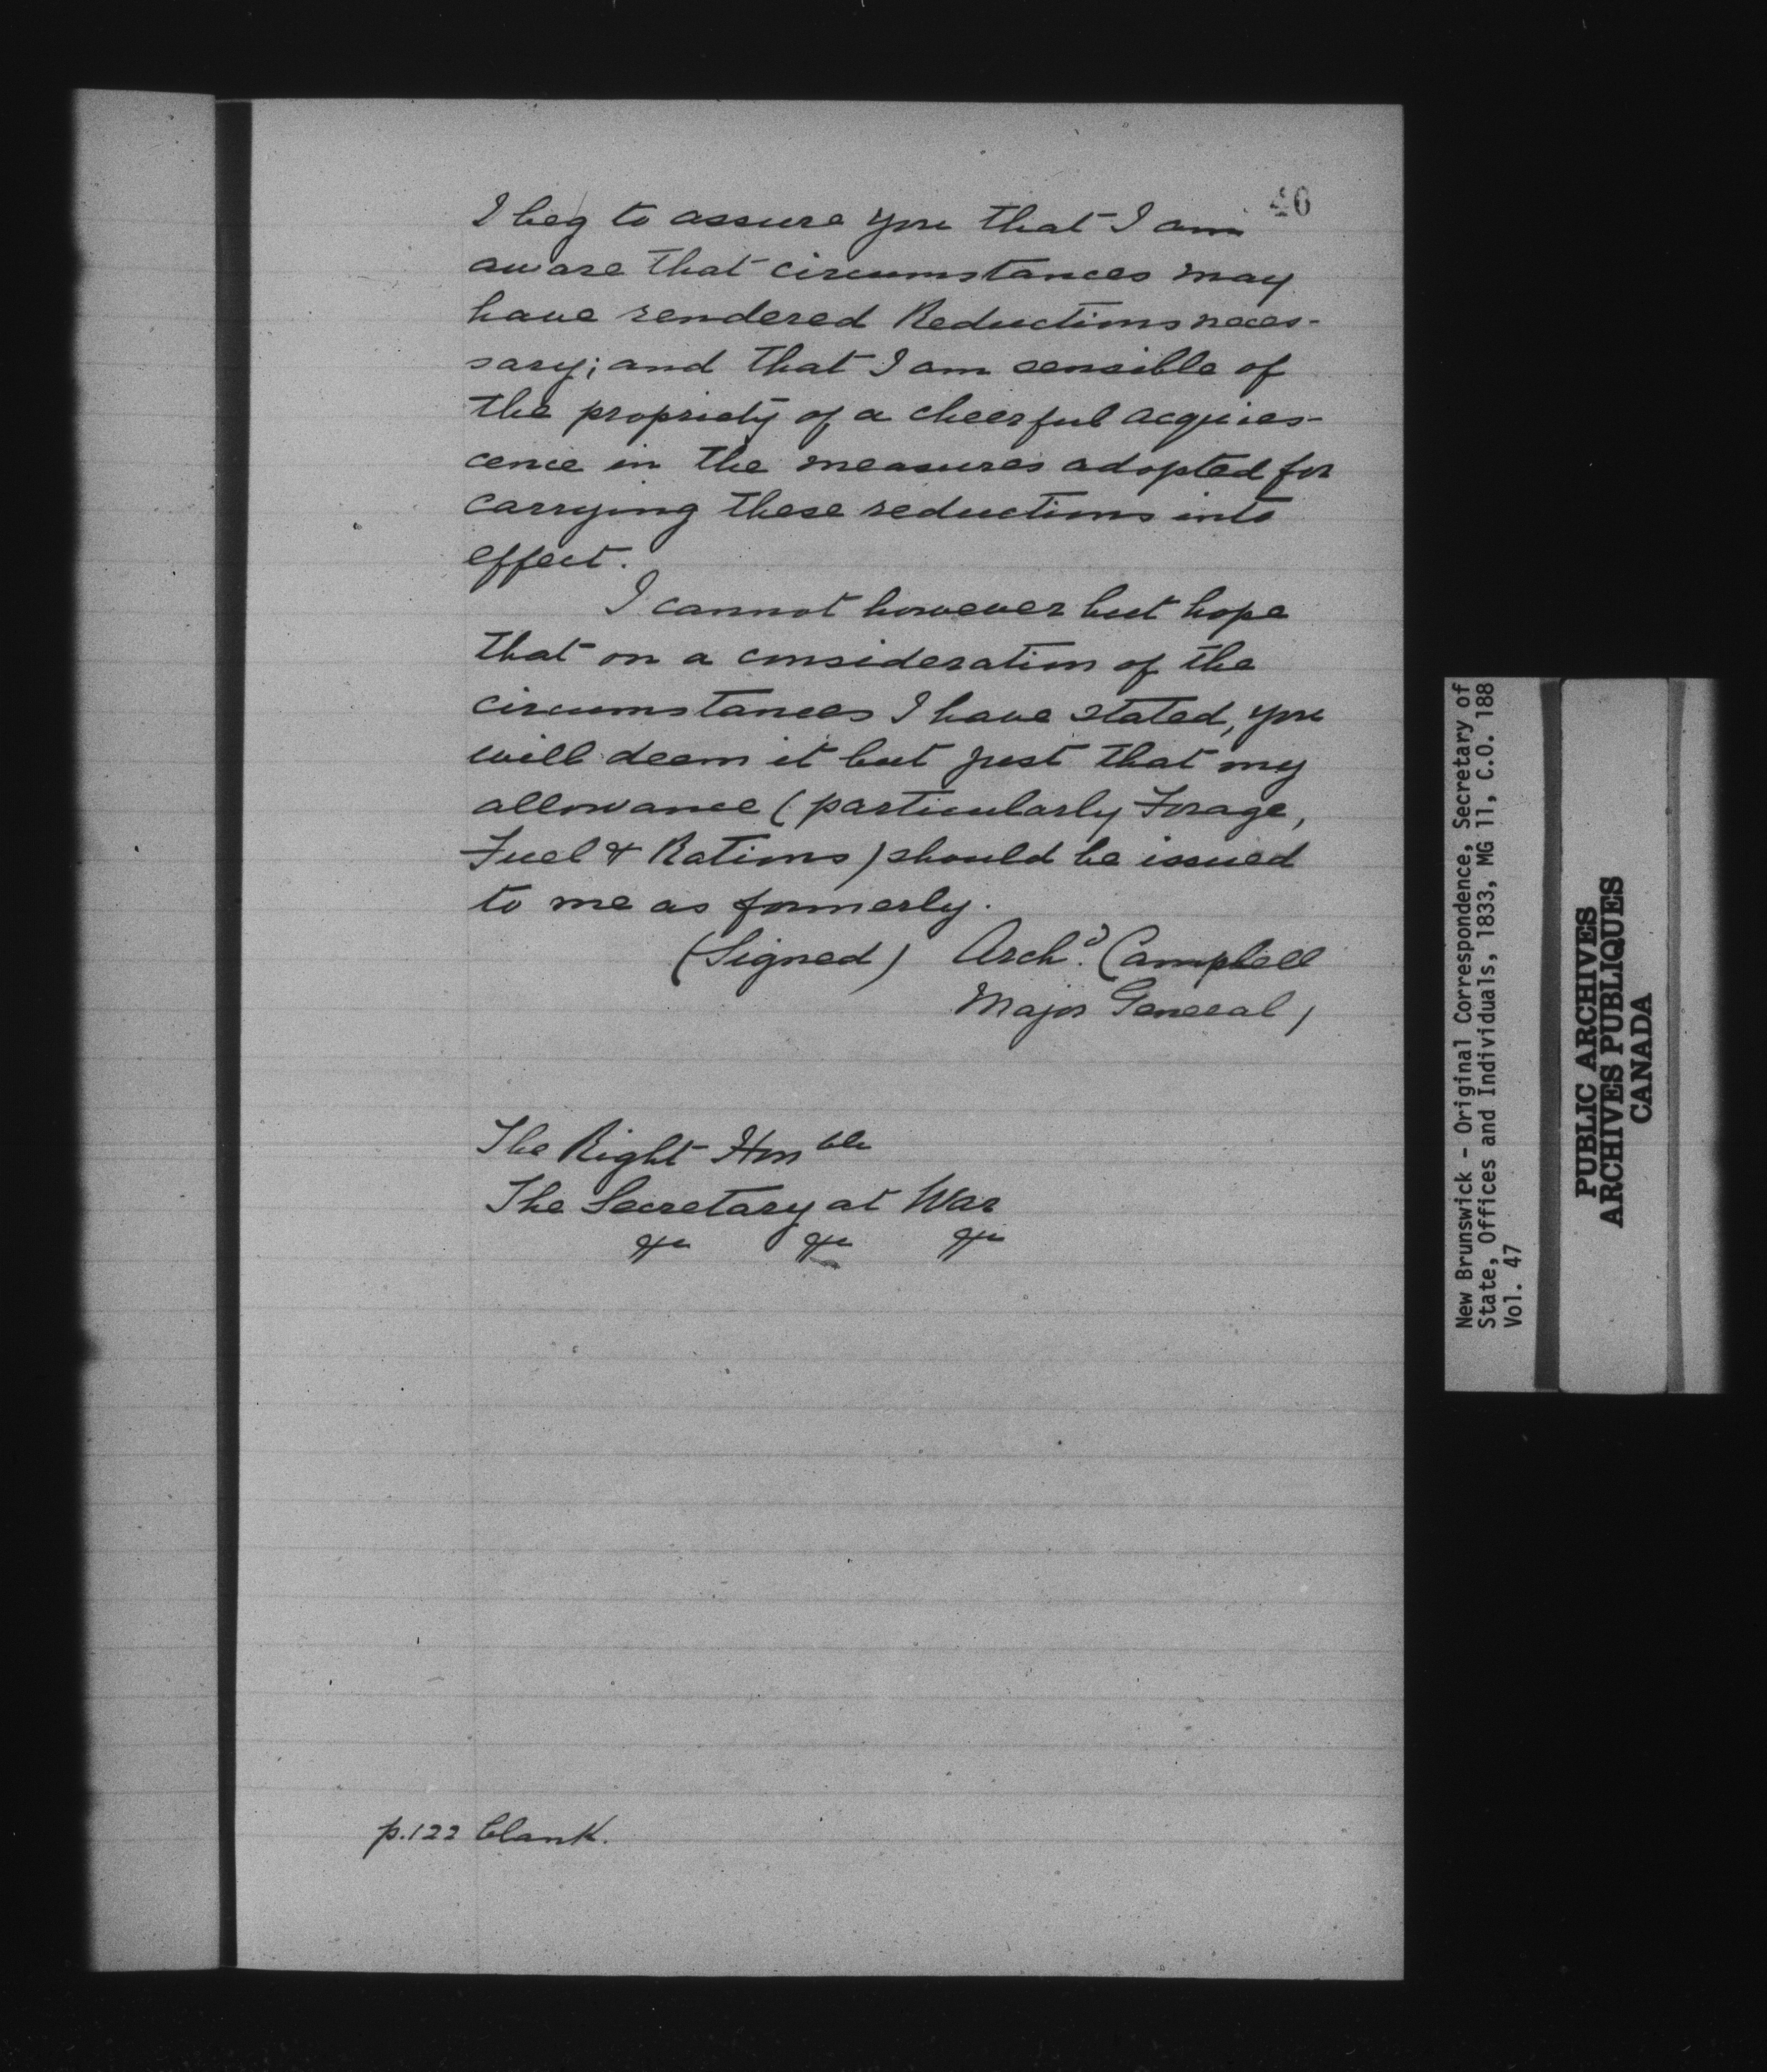 46
I beg to assure you that I am
aware that circumstances may
have rendered Reductions neces-
sary; and that I am sensible of
the propriety of a cheerful acquies-
cence in the measures adopted for
carrying these reductions into
effect.
I cannot however but hope
that on a consideration of the
circumstances I have stated, you
will deem it but just that my
allowance (particularly Forage,
Fuel & Rations) should be issued
to me as formerly.
(Signed) Archd. Campbell
Major General,
The Right Honble
The Secretary at War
&c &c &c
p.122 blank.
New Brunswick - Original Correspondence, Secretary of
State, Offices and Individuals, 1833, MG 11, C.O. 188
Vol. 47
PUBLIC ARCHIVES
ARCHIVES PUBLIQUES
CANADA